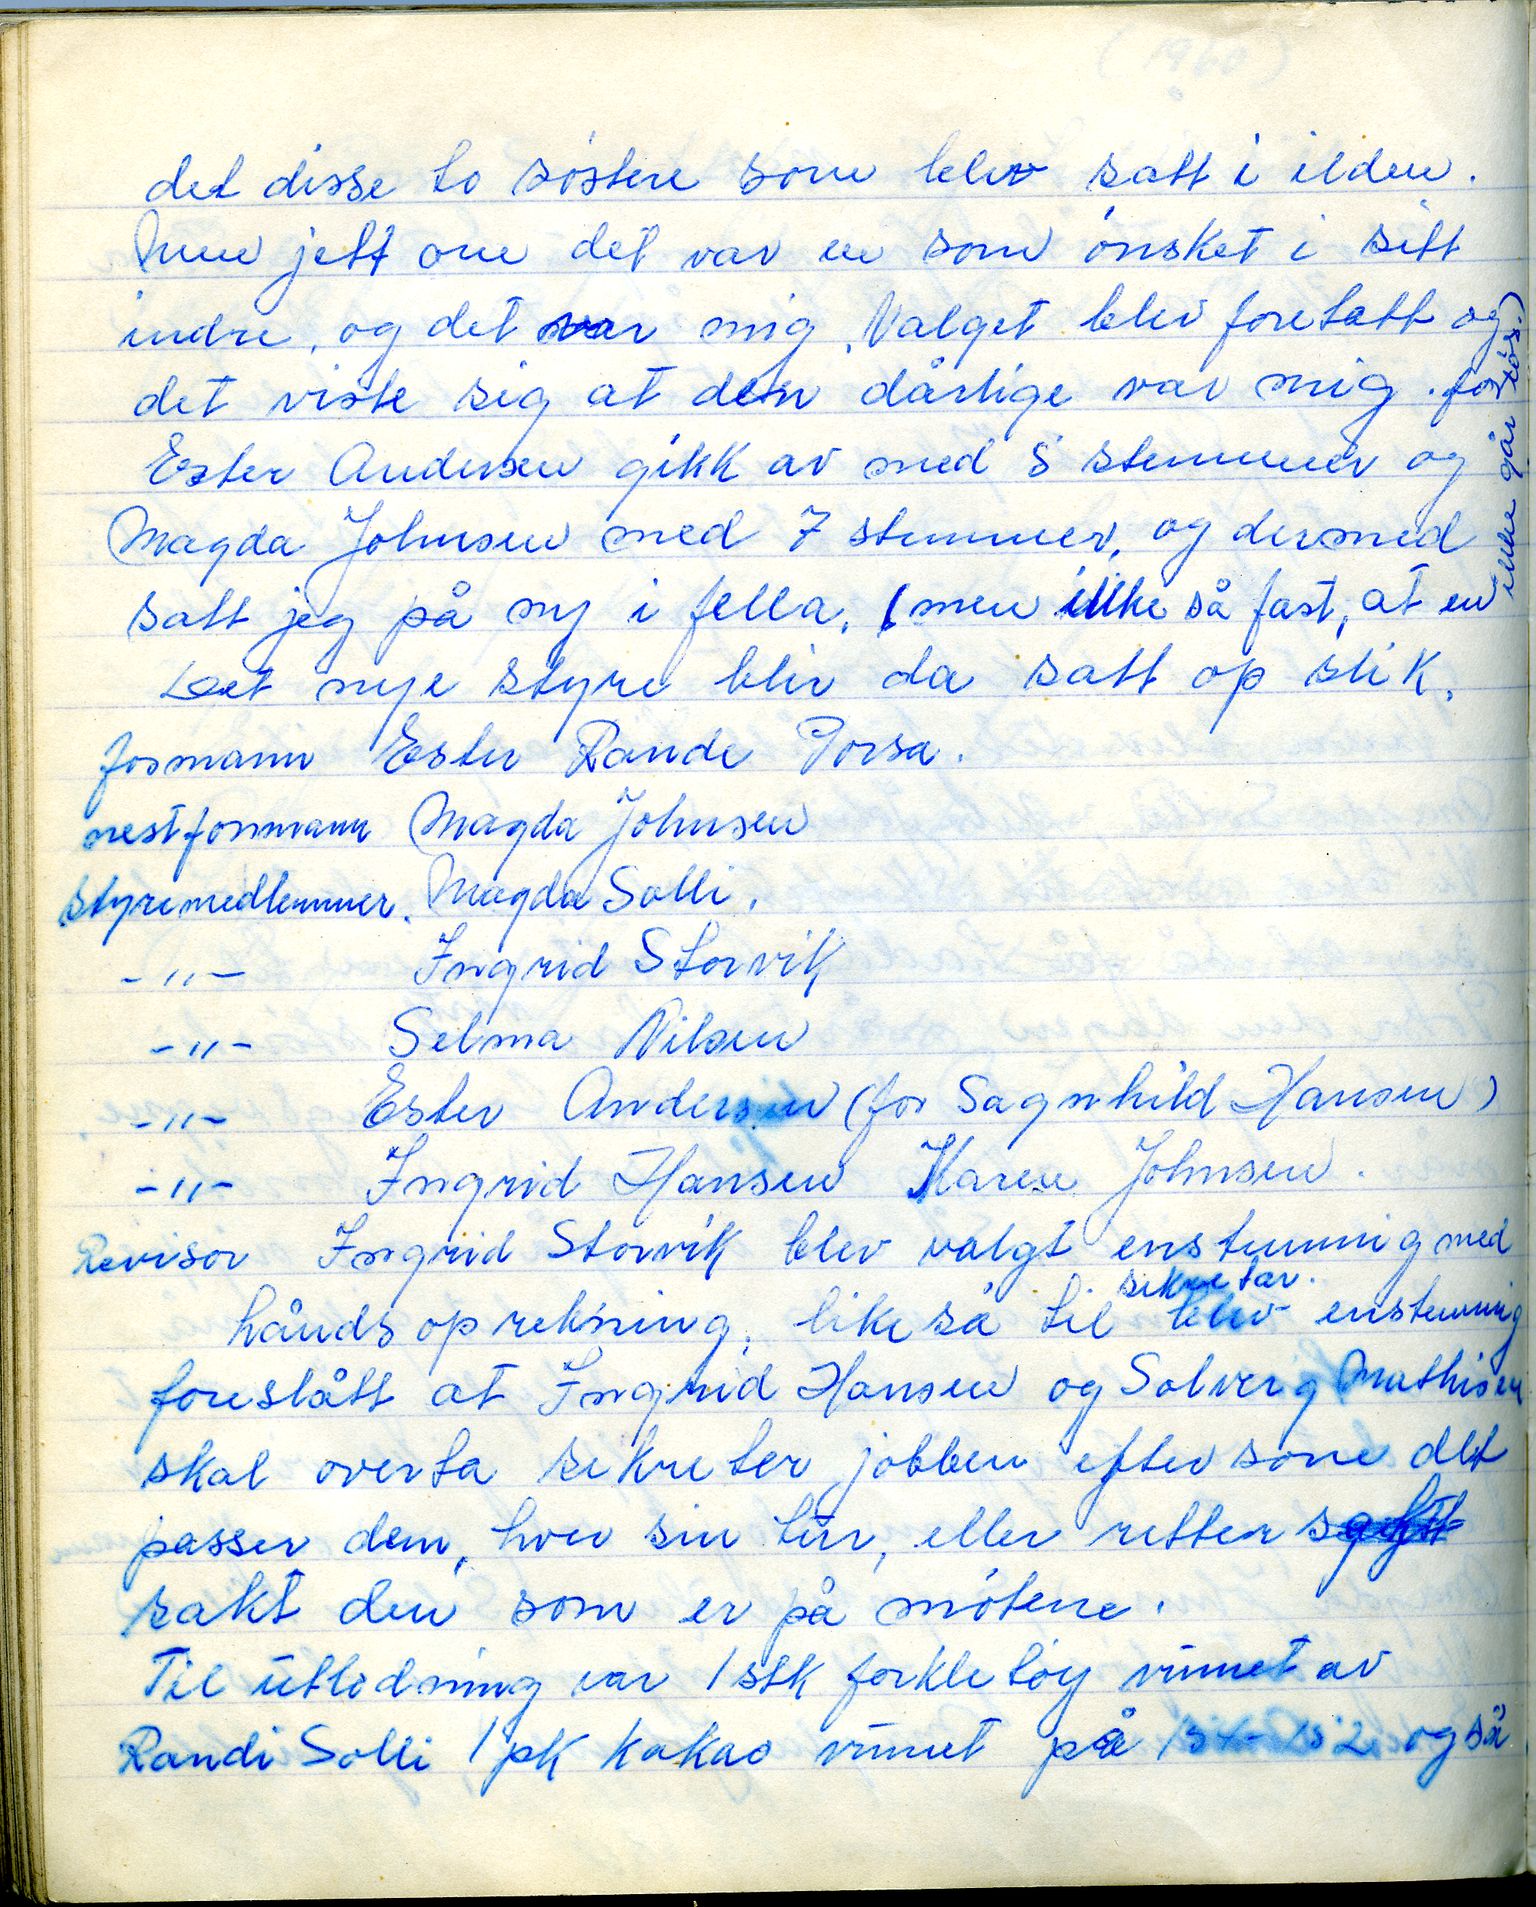 det disse to søstere som blev satt i ilden.
Men jett om det var en som ønsket i sitt
indre, og det var mig. Valget blev foretatt og
det viste sig at den dårlige var mig. for
Ester Andersen gikk av med 8 stemmer og
Magda Johnsen med 7 stemmer, og dermed
satt jeg på ny i fella. (men ikke så fast, at en
ikke går løs.)
Det nye styre bliv da satt op slik.
formann Ester Rande Porsa.
nestformann Magda Johnsen
styremedlemmer. Magda Solli.
-"- Ingrid Storvik
-"- Selma Nilsen
-"- Ester Andersen (for Sagnhild Hansen)
-"- Ingrid Hansen Karen Johnsen.
Revisor Ingrid Storvik blev valgt enstemmig med
håndsoprekning, likeså til sekretær. blev enstemmig
foreslått at Ingrid Hansen og Solveig Mathisen
skal overta sekreter jobben eftersom det
passer dem, hver sin tur, eller retter
sakt den som er på møtene.
Til utlodning var 1 stk forkletøy vunnet av
Randi Solli 1 pk kakao vunnet på også